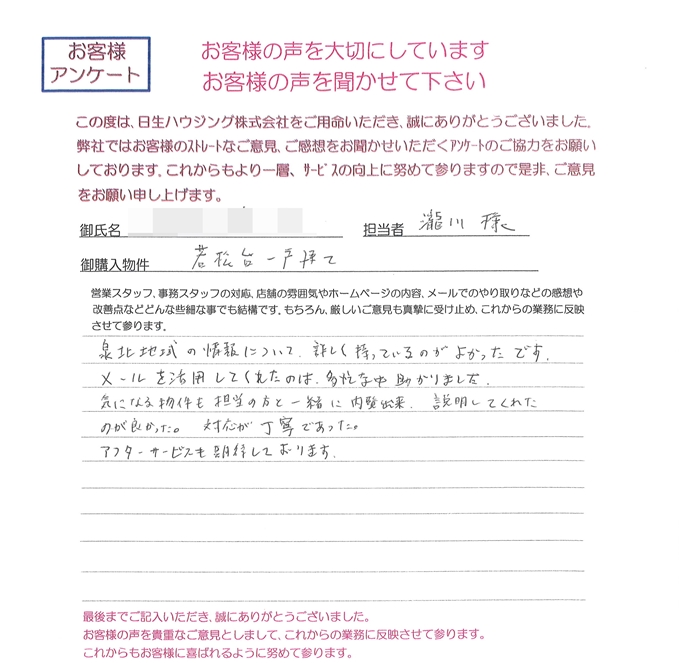 お客様
アンケート
お客様の声を大切にしています
お客様の声を聞かせて下さい
この度は、日生ハウジング株式会社をご用命いただき、誠にありがとうございました。
弊社ではお客様のストレートなご意見、ご感想をお聞かせいただくアンケートのご協力をお願い
しております。これからもより一層、サービスの向上に努めて参りますので是非、ご意見
をお願い申し上げます。
御氏名
担当者 瀧川 様
御購入物件 若松台一戸建て
営業スタッフ、事務スタッフの対応、店舗の雰囲気やホームページの内容、メールでのやり取りなどの感想や
改善点などどんな些細な事でも結構です。もちろん、厳しいご意見も真摯に受け止め、これからの業務に反映
させて参ります。
泉北地域の情報について、詳しく持っているのがよかったです。
メールを活用してくれたのは、多忙な中助かりました。
気になる物件も担当の方と一緒に内覧出来、説明してくれた
のが良かった。 対応が丁寧であった。
アフターサービスも期待しております。
最後までご記入いただき、誠にありがとうございました。
お客様の声を貴重なご意見としまして、これからの業務に反映させて参ります。
これからもお客様に喜ばれるように努めて参ります。